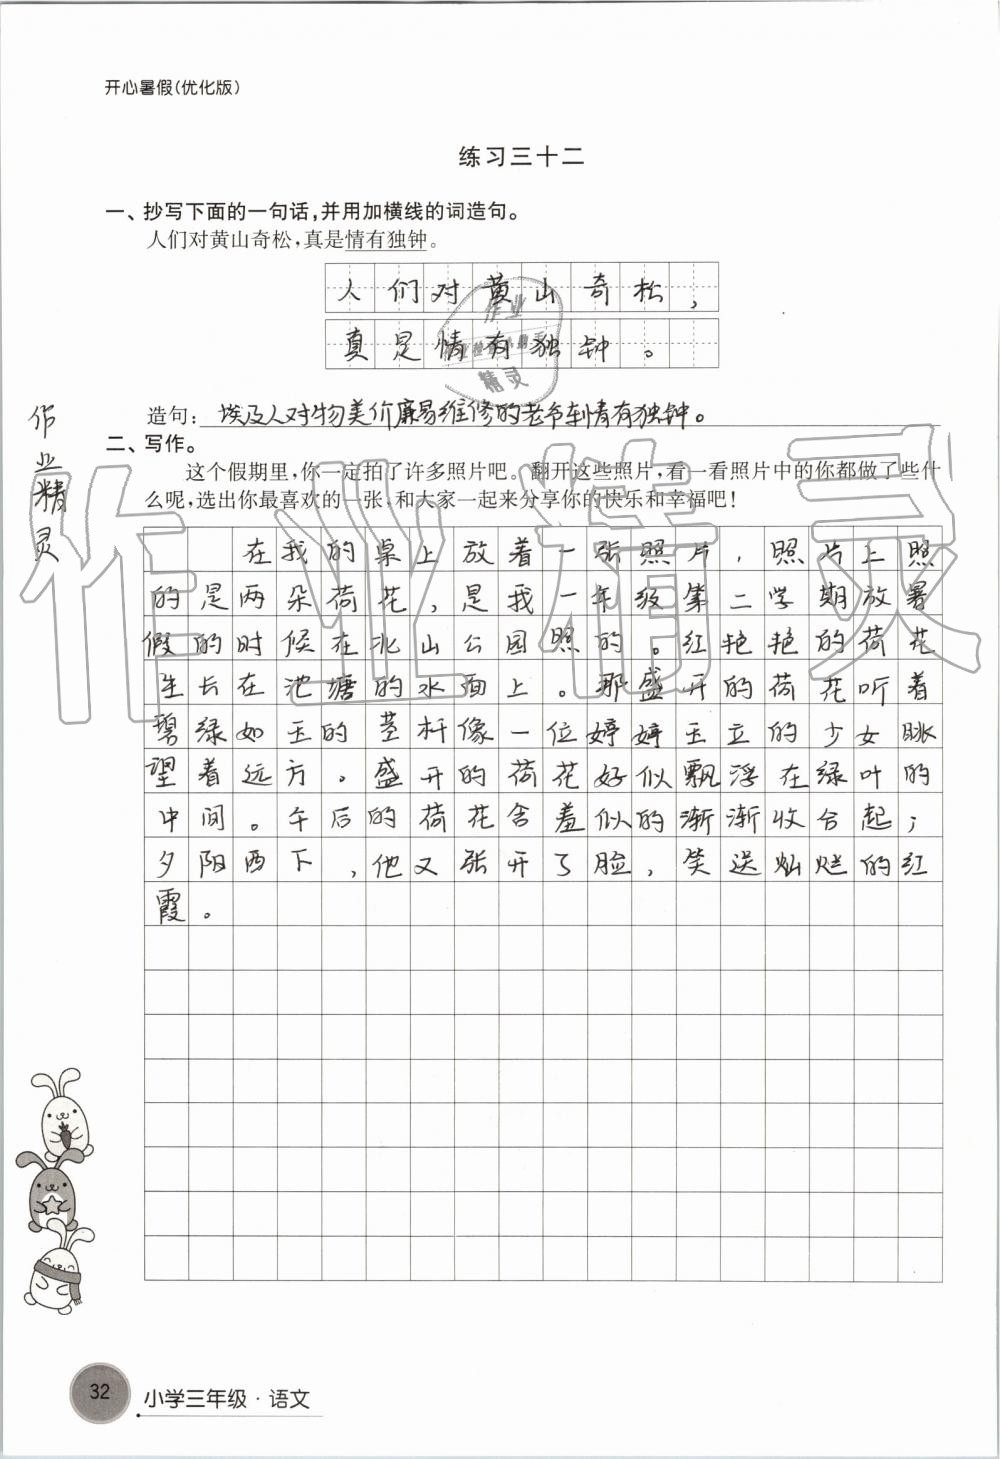 开心暑假(优化版)
练习三十二
一、抄写下面的一句话,并用加横线的词造句。
人们对黄山奇松,真是情有独钟。
人们对黄山奇松,
真是情有独钟。
造句:埃及人对物美价廉易维修的老爷车情有独钟。
二、写作。
这个假期里,你一定拍了许多照片吧。翻开这些照片,看一看照片中的你都做了些什
么呢,选出你最喜欢的一张,和大家一起来分享你的快乐和幸福吧!
在我的桌上放着一张照片,照片上照
的是两朵荷花,是我一年级第二学期放暑
假的时候在北山公园照的。红艳艳的荷花
生长在池塘的水面上。那盛开的荷花听着
碧绿如玉的茎杆像一位婷婷玉立的少女眺
望着远方。盛开的荷花好似飘浮在绿叶的
中间。午后的荷花含羞似的渐渐收合起;
夕阳西下,他又张开了脸,笑送灿烂的红
霞。
作业精灵
作业精灵
作业
精灵
32
小学三年级·语文